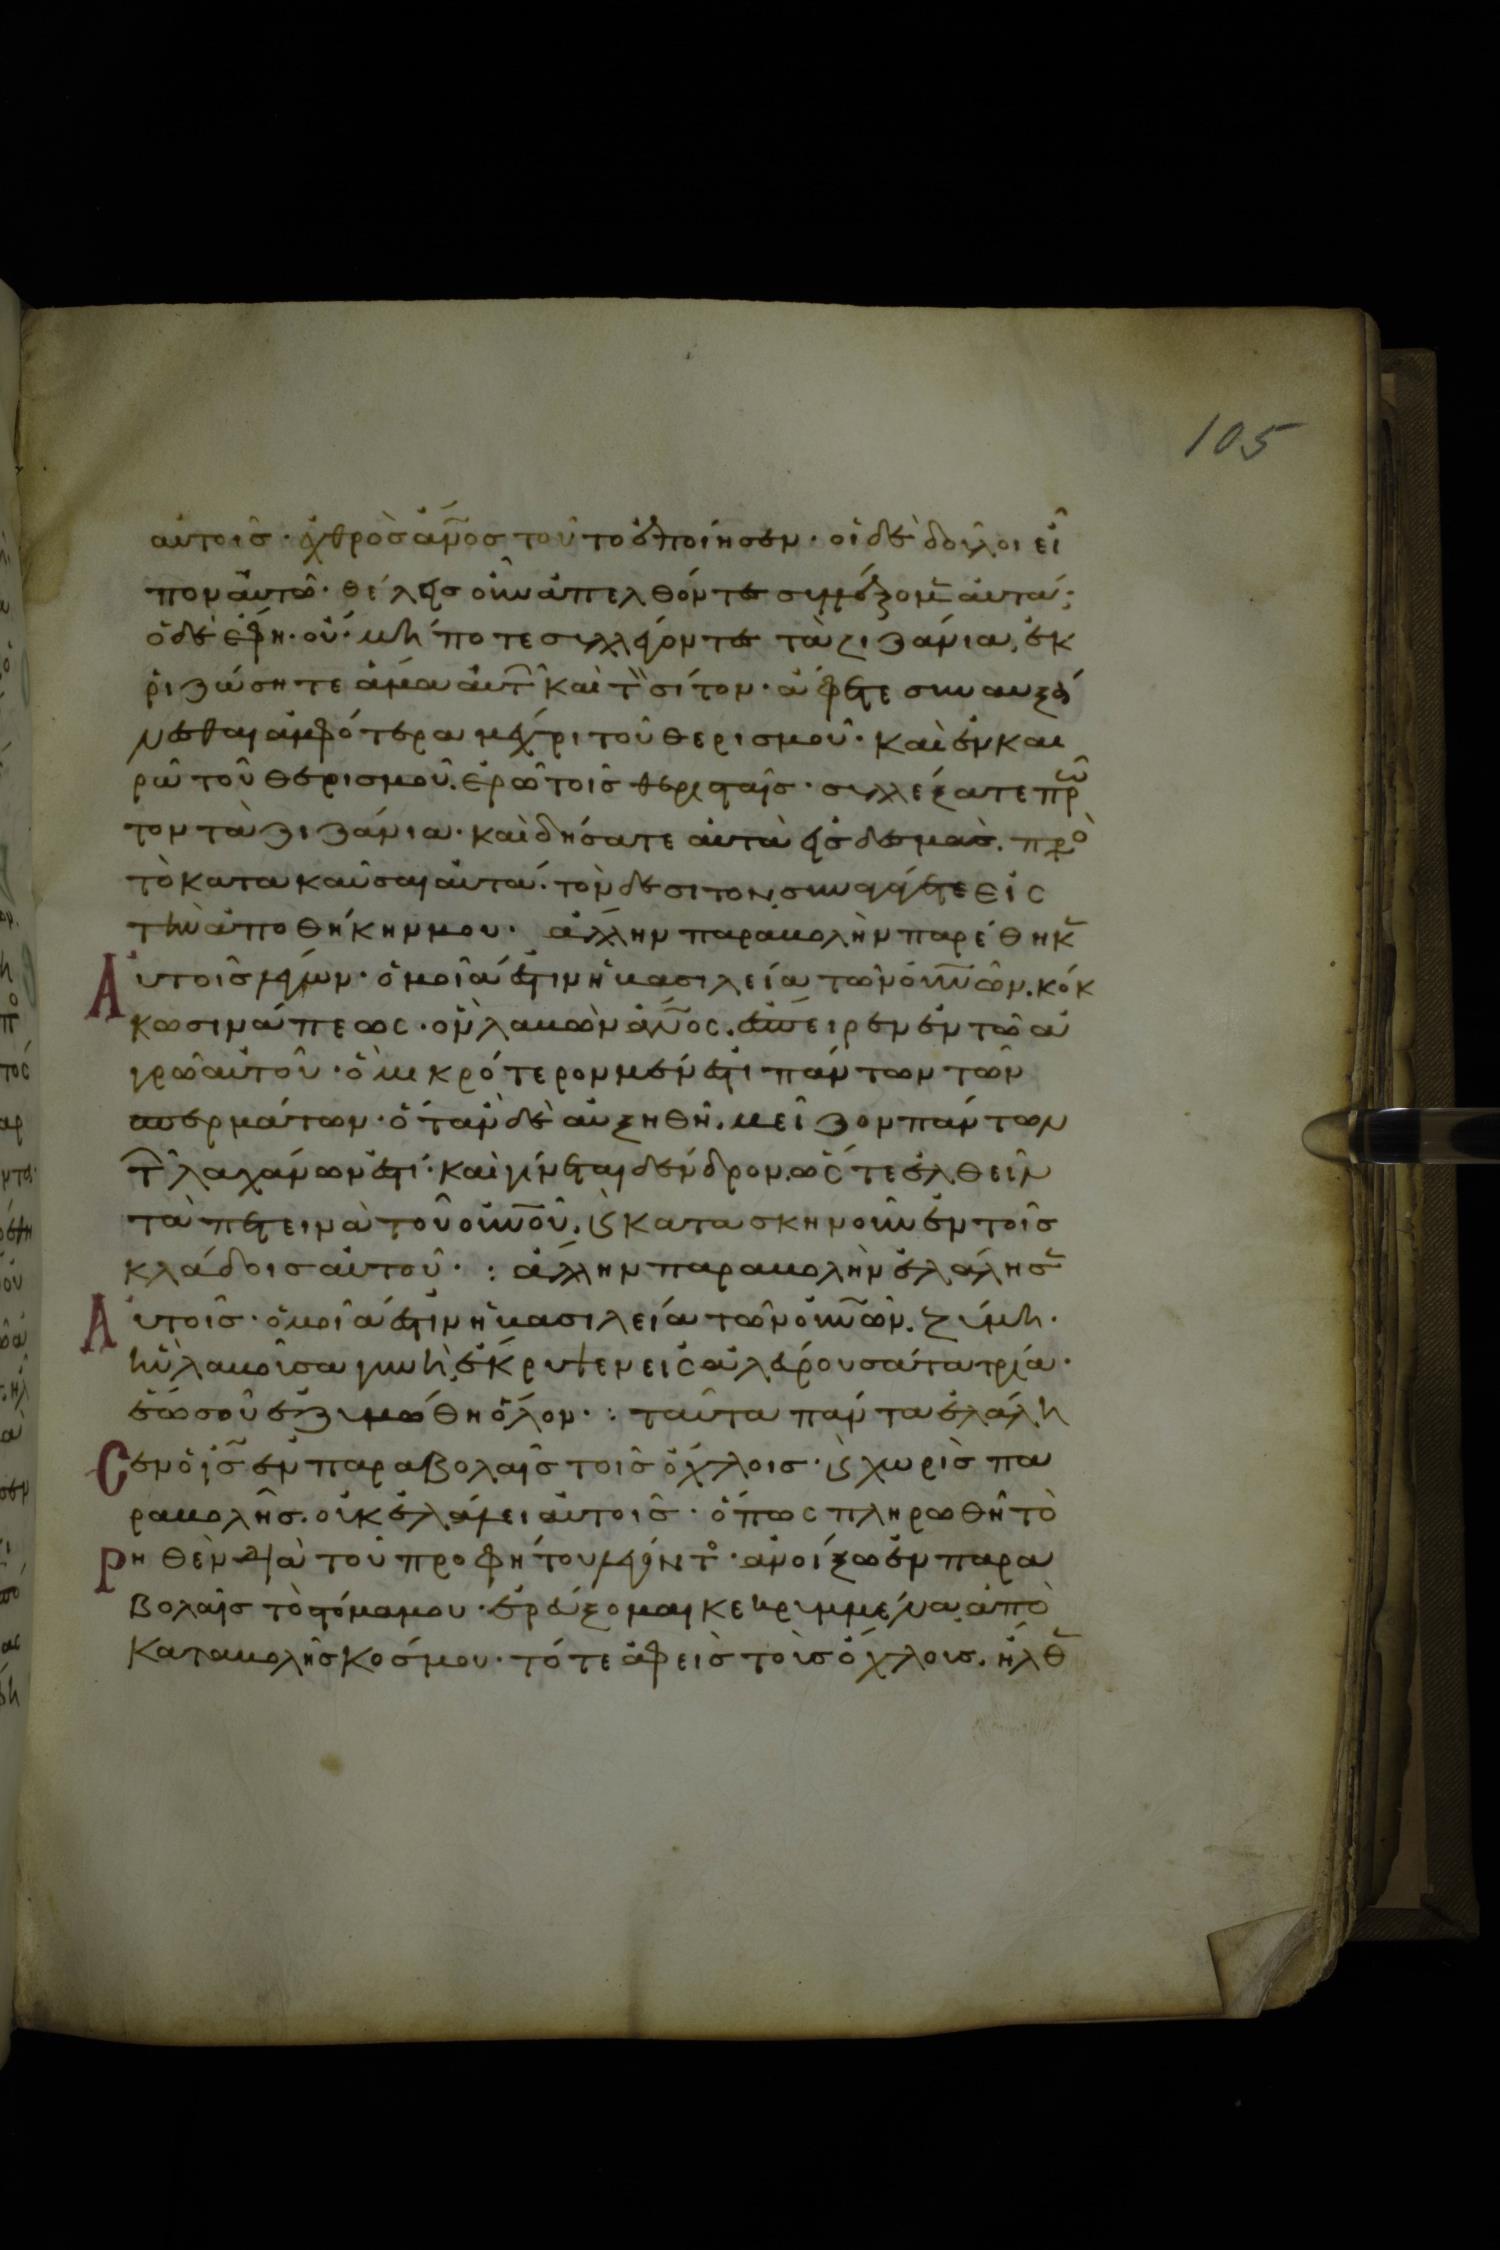 105
αὐτοῖς· ἐχθρὸς ἄν̅ος τοῦτο ἐποίησεν· οἱ δὲ δοῦλοι εἶ
πον αὐτῶ· θέλεις οὖν ἀπελθόντες συλλέξομ̅ αὐτά;
ὁ δὲ ἔφη· οὔ· μήποτε συλλέγοντες τὰ ζιζάνια, ἐκ
ριζώσητε ἅμα αὐτ̑ καὶ τ̀ σίτον· ἄφετε συναυξά
νεσθαι ἀμφότερα μέχρι τοῦ θερισμοῦ· καὶ ἐν και
ρῶ τοῦ θερισμοῦ. ἐρῶ τοῖς θερισταῖς· συλλέξατε πρῶ
τον τὰ ζιζάνια· καὶ δήσατε αὐτὰ εἰς δεσμὰς. πρὸ
τὸ κατακαῦσαι αὐτά· τὸν δὲ σίτον συναγάγετε εἰς
τὴν ἀποθήκην μου· ἄλλην παραβολὴν παρέθηκ̅
Αὐτοῖς λέγων· ὁμοία ἐστὶν ἡ βασιλεία τῶν οὐν̅ῶν. κόκ
κω σινάπεως· ὃν λαβὼν ἄν̅ος. ἔσπειρεν ἐν τῶ ἀ
γρῶ αὐτοῦ· ὃ μικρότερον μέν ἐστι πάντων τῶν
σπερμάτων· ὅταν δὲ αὐξηθῆ. μεῖζον πάντων
τ̑ λαχάνων ἐστί· καὶ γίνεται δένδρον. ὥστε ἐλθεῖν
τὰ πετεινὰ τοῦ οὐν̅οῦ. ϗ κατασκηνοῦν ἐν τοῖς
κλάδοις αὐτοῦ· : ἄλλην παραβολὴν ἐλάλησ̅
Αὐτοῖς· ὁμοία ἐστὶν ἡ βασιλεία τῶν οὐν̅ῶν. ζύμη·
ἣν λαβοῦσα γυνὴ ἔκρυψεν εἰς ἀλεύρου σάτα τρία·
ἕως οὗ ἐζυμώθη ὅλον· : ταῦτα πάντα ἐλάλη
Cεν ὁ ἰς̅ ἐν παραβολαῖς τοῖς ὄχλοις· ϗ χωρὶς πα
ραβολῆς. οὐκ ἐλάλει αὐτοῖς· ὅπως πληρωθῆ τὸ
Ρηθὲν διὰ τοῦ προφήτου λέγοντο· ἀνοίξω ἐν παρα
βολαῖς τὸ στόμα μου· ἐρεύξομαι κεκρυμμένα ἀπὸ
καταβολῆς κόσμου· τότε ἀφεὶς τοὺς ὄχλους. ἦλθ̅